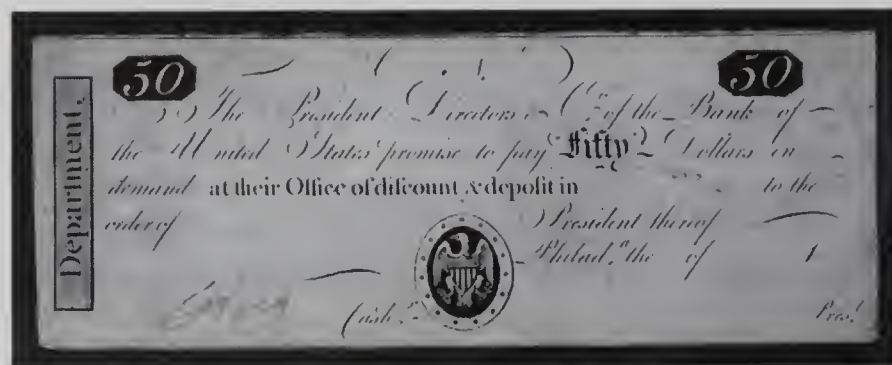 50 50
The President Directors & Co. of the Bank of
the United States promise to pay Fifty Dollars on
demand at their Office of diſcount & depoſit in to the
order of President thereof
Philad.ª the of 1
Cash.r Pres.t
Department.